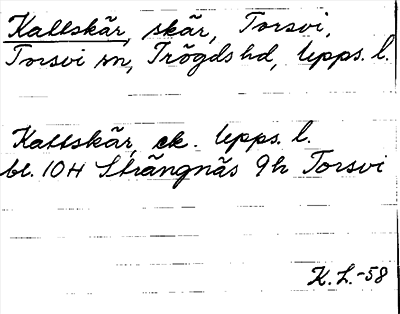 Kattskär, skär, Torsvi,
Torsvi sn, Trögds hd, Upps. l.
Kattskär, ek. Upps. l.
bl. 10H Strängnäs 9h Torsvi
K.L.-58